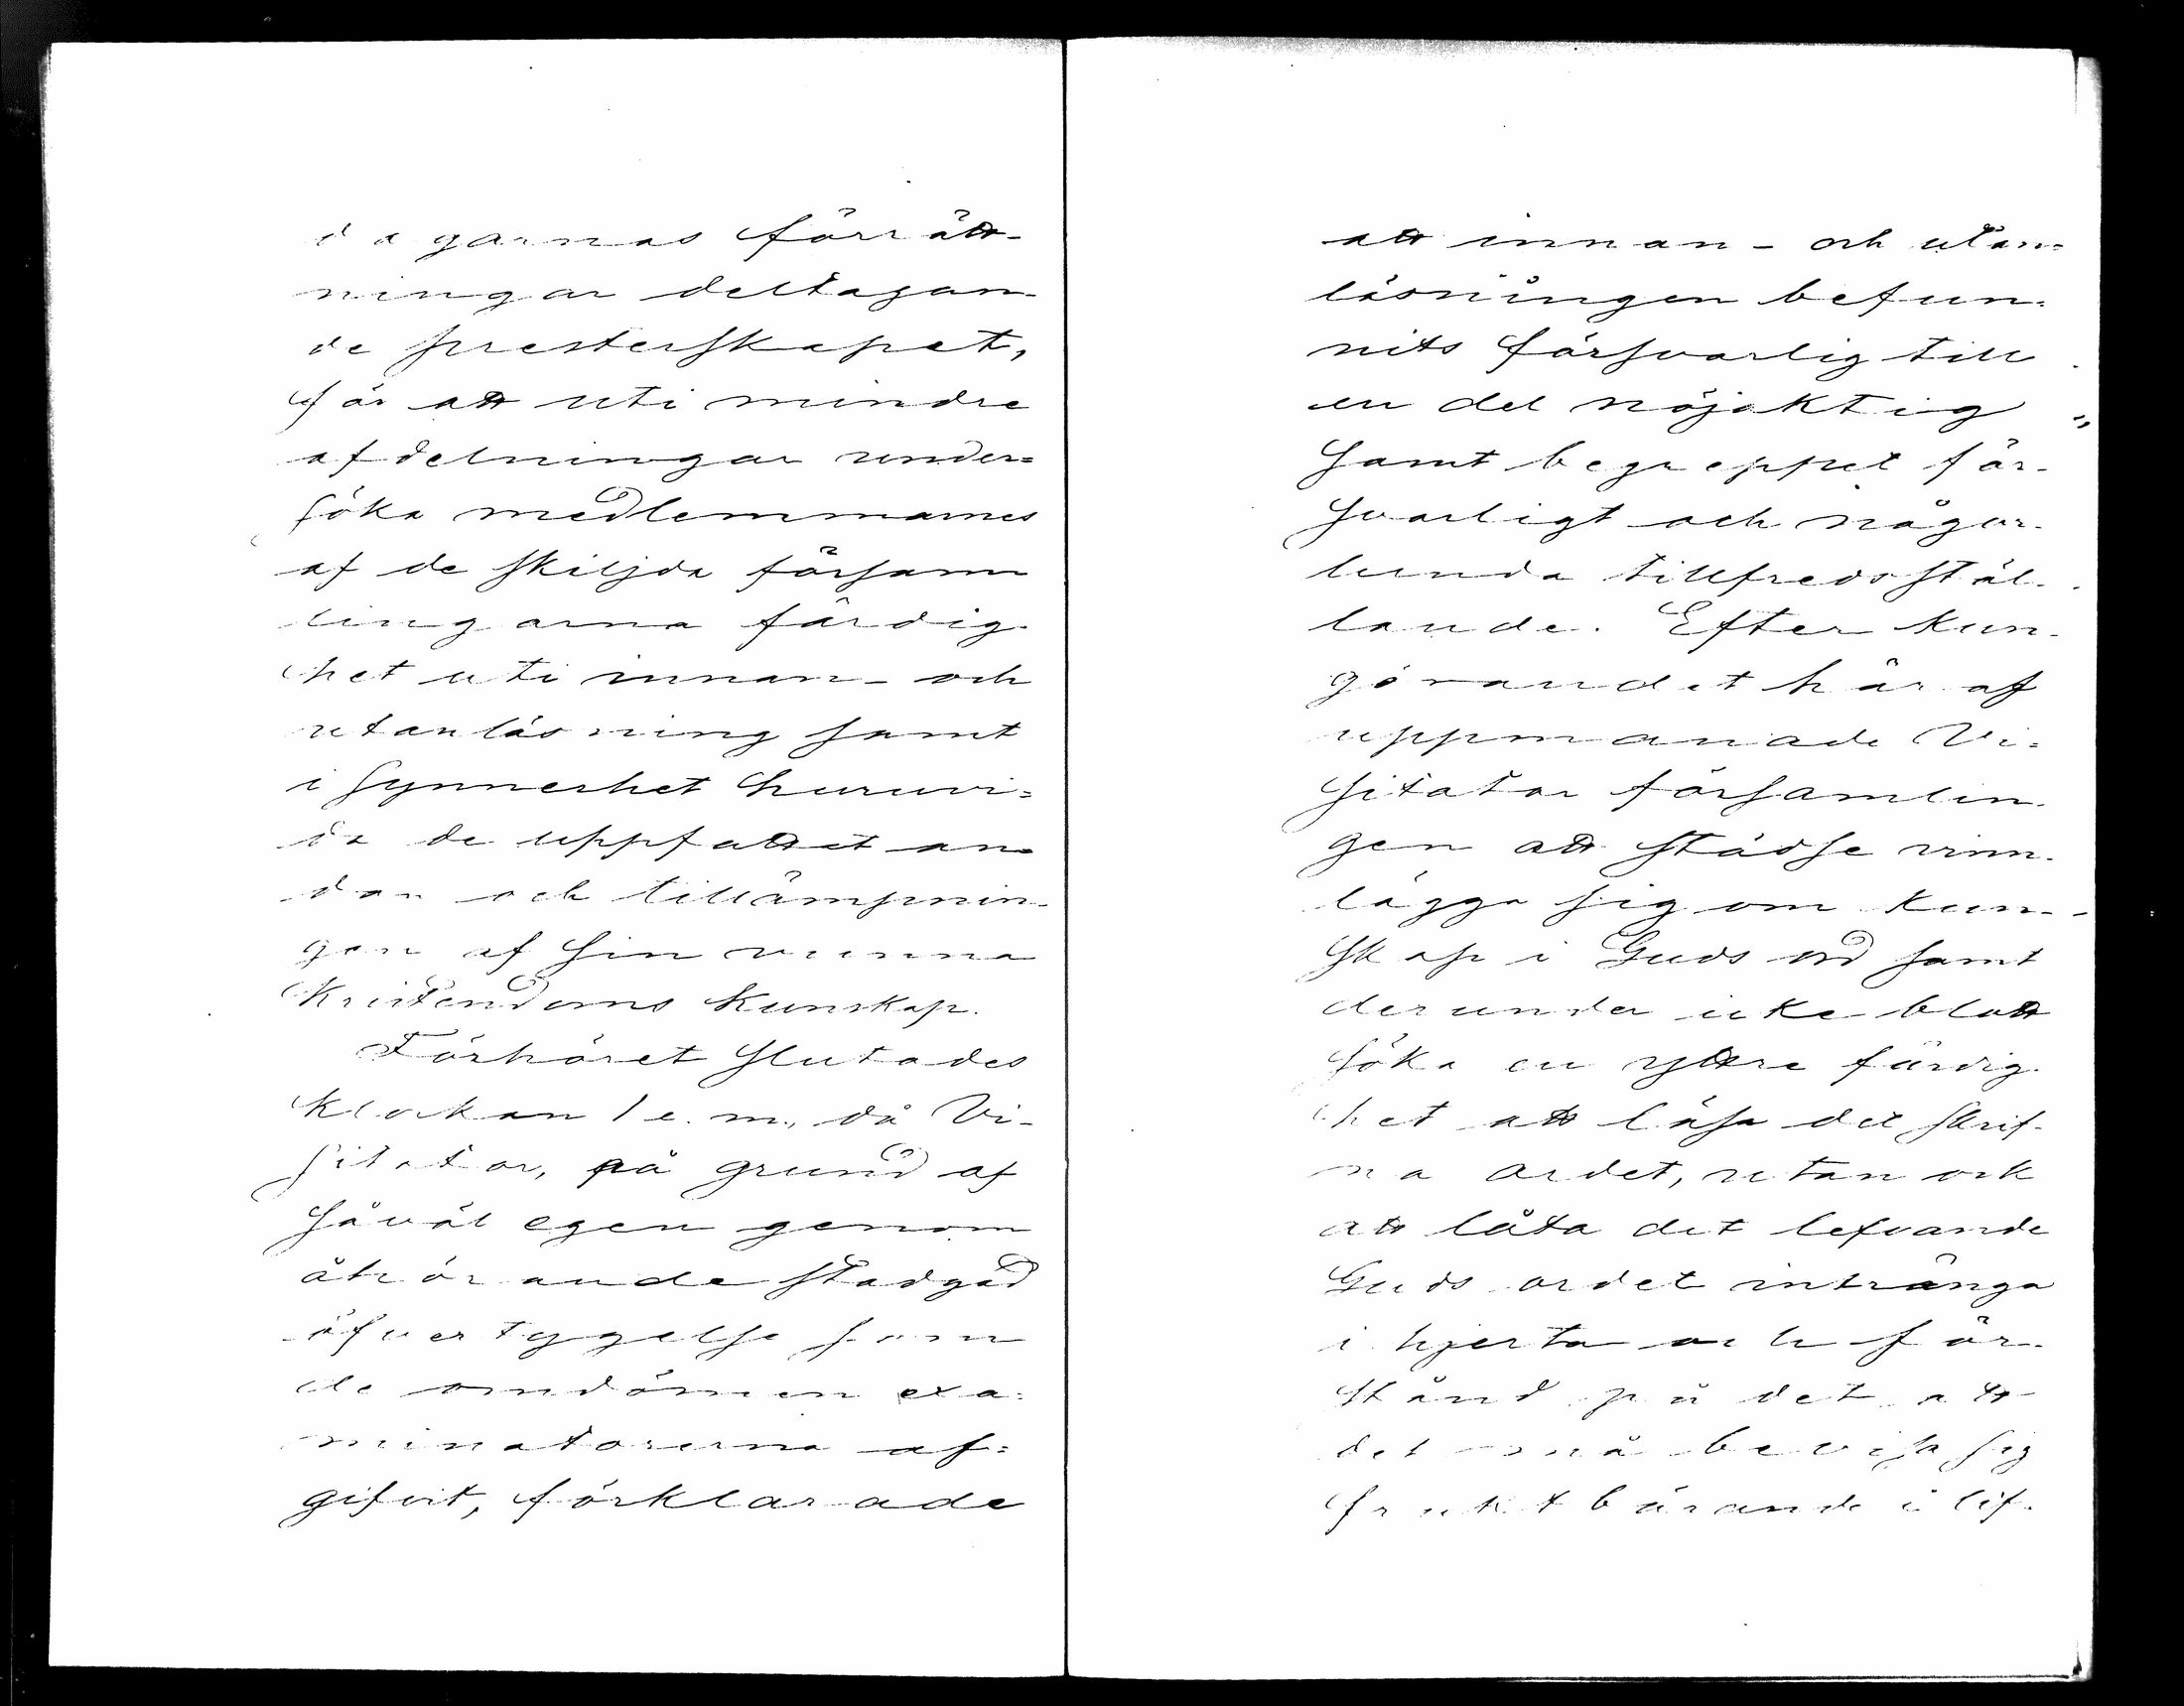 dagarnas förrätt-
ningar deltagan-
de presterskapet,
för att uti mindre
afdelningar under=
söka medlemmarnes
af de skiljda försam
lingarna färdig-
het uti innan- och
utanläsning samt
i synnerhet huruvi=
da de uppfattat an=
dan och tillämpnin-
gen af sin vunna
Kristendoms kunskap.
Förhöret slutades
klockan 1 e. m., då Vi-
sitator, på grund af
såväl egen genom
åhörande stadgad
öfvertygelse som
de omdömen exa=
minatorerna af=
gifvit, förklarade
att innan- och utan=
läsningen befun-
nits försvarlig till
en del nöjaktig
samt begreppet för-
svarligt och någor-
lunda tillfredsstäl-
lande. Efter kun-
görandet här af
uppmanade Vi=
sitator församlin-
gen att städse vinn-
lägga sig om kun-
skap i Guds ord samt
derunder icke blott
söka en yttre färdig-
het att läsa det skrif-
na ordet, utan ock
att låta det lefvande
Guds ordet intränga
i hjerta och för-
stånd på det att
det må bevisa sig
fruktbärande i lif-